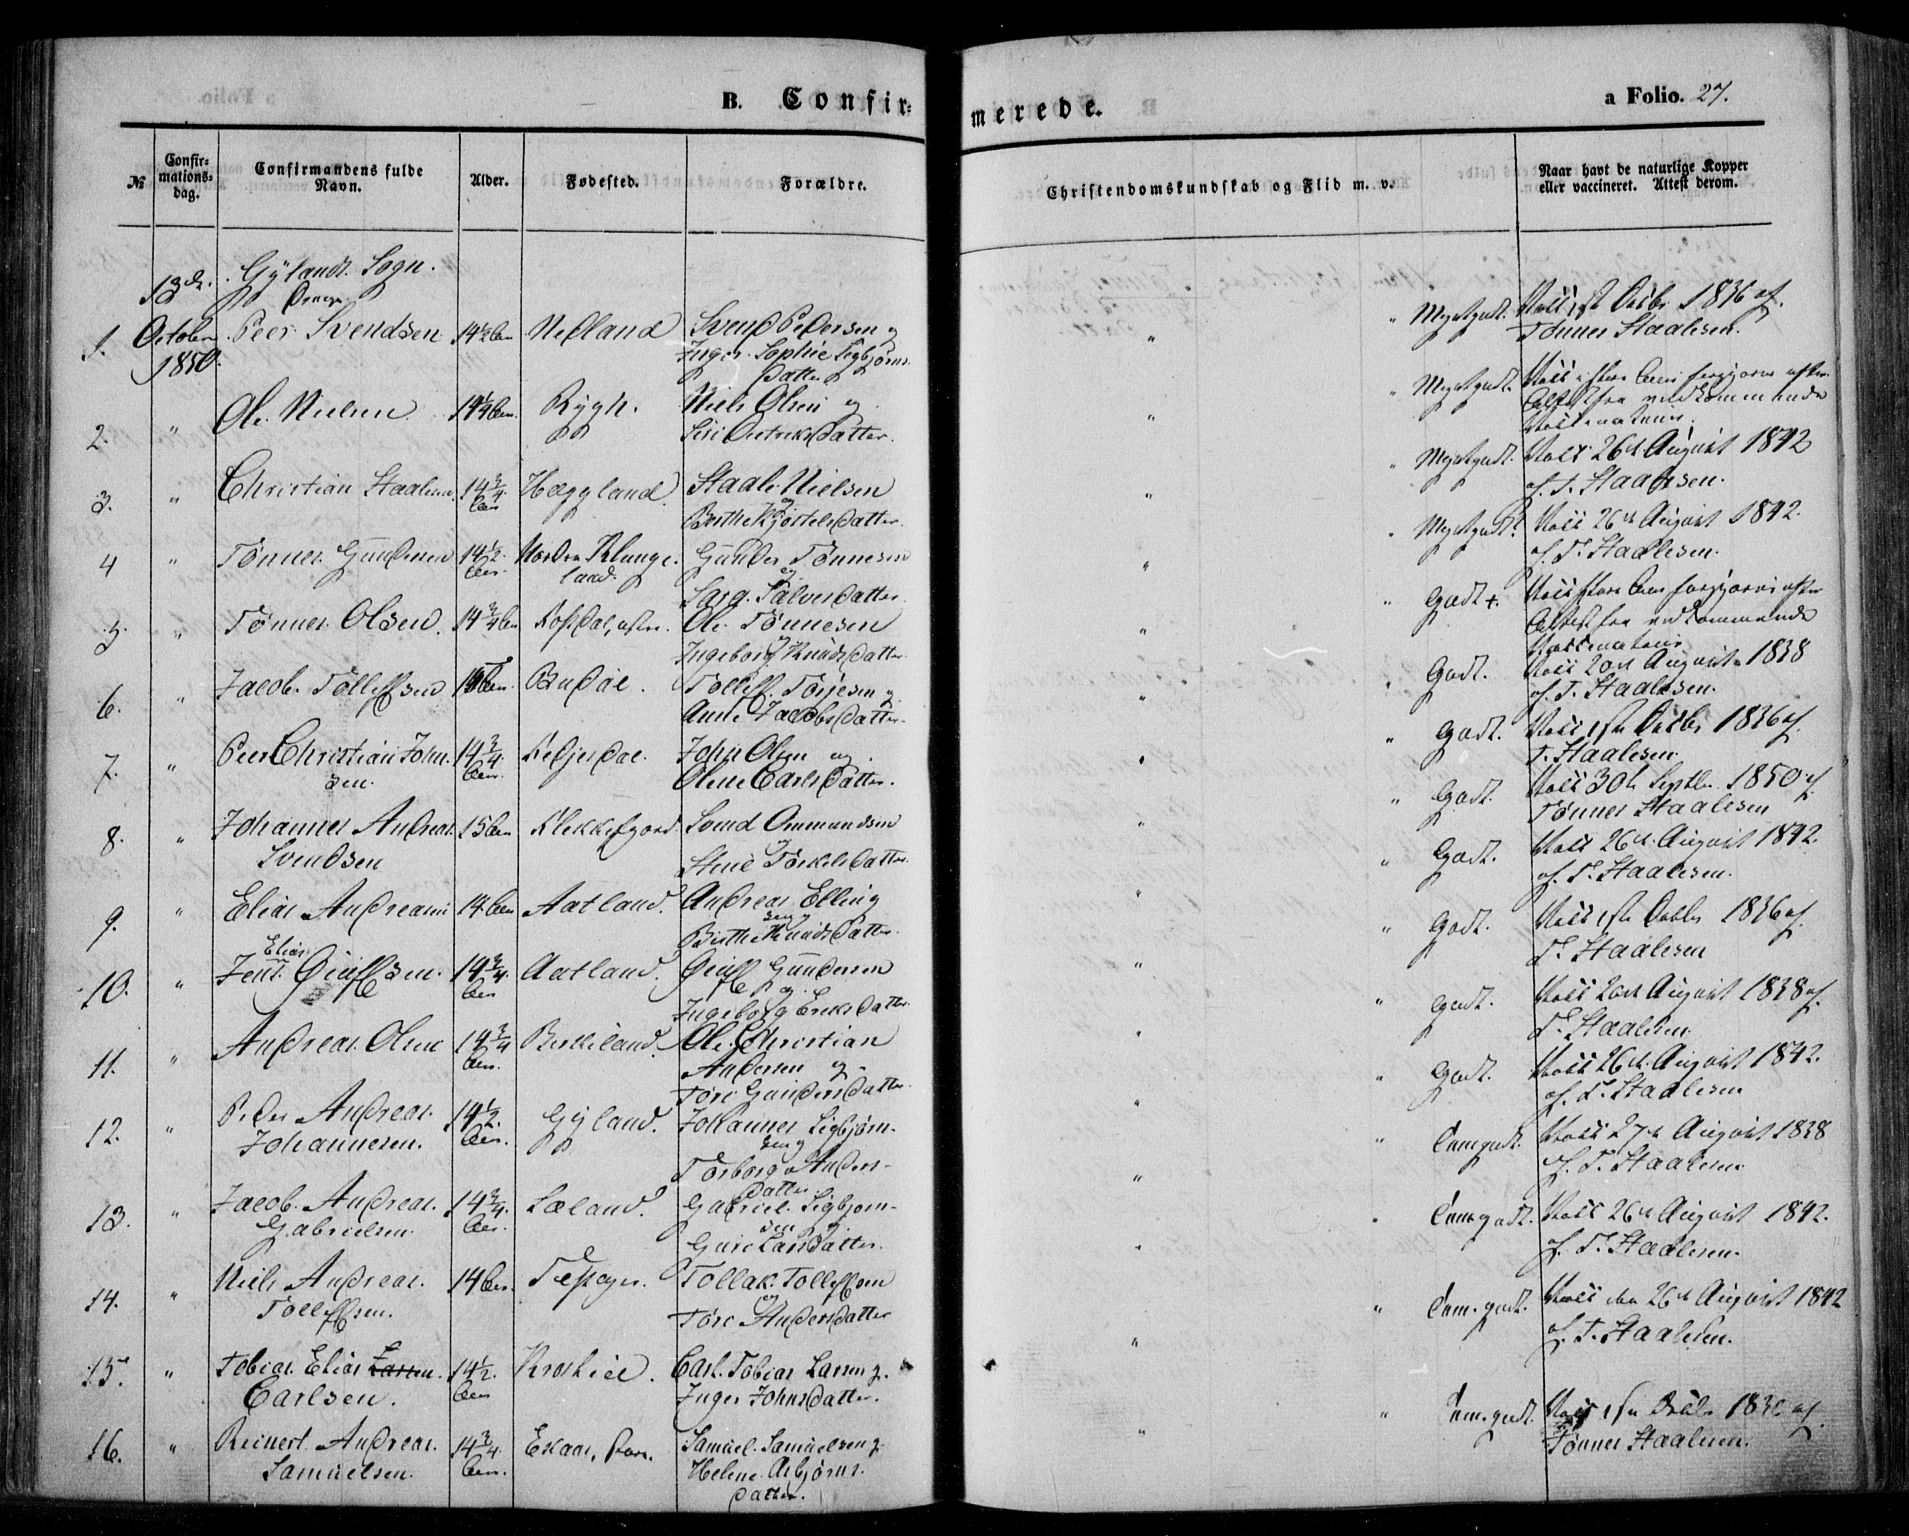 B. Confir=
merede.
a Folio. 27.
№
Confir=
mations=
dag.
Confirmandens fulde
Navn.
Alder.
Fødested.
Forældre.
Christendomskundskab og Flid m. v.
Naar havt de naturlige Kopper
eller vaccineret. Attest derom.
13de
October
1850.
Gylands Sogn.
Drenge.
1. Peer Svendsen 14½ Aar Nedland Svend Pedersen og
Inger Sophie Sigbjørns
Datter
" Megetgodt. Vacc 1ste Octbr 1836 af
Tønnes Staalesen.
2. " Ole Nielsen 14¼ Aar. Rygh. Niels Olsen og
Siri Dietriks Datter.
" Megetgodt. Vacc
Attest fra vedkommende
3. " Christian Staalesen 14¾ Aar Hæggland. Staale Nielsen
og
Berthe Kjøstels Datter.
" Megetgodt. Vacc 26de August 1842
af T. Staalesen.
4 " Tønnes Gundersen 14½ Aar. Nordre Klunge=
land. Gunder Tønnesen
og
Sara Salves Datter.
" Megetgodt. Vacc 26de August 1842.
af T. Staalesen.
5. " Tønnes Olsen. 14¾ Aar Ole Tønnesen
Ingeborg Knuds Datter.
" Godt +.
Attest fra vedkommende
6. " Jacob Tollefsen 15 Aar. Budal. Tollef Torjesen og
Anne Jacobs Datter.
" Godt. Vacc 20de August 1838
af T. Staalesen.
7. " Peer Christian John=
sen. 14¾ Aar. Refjes Dal. John Olsen og
Oline Carls Datter.
" Godt. Vacc 1ste Octbr 1836 af
T. Staalesen.
8. " Johannes Andreas
Svendsen 15 Aar Flekkefjord Svend Ommundsen
Stine Torkels Datter
" Godt. Vacc 30te Septbr 1850 af
Tønnes Staalesen
9. " Elias Andreasen 14 Aar Aatland. Andreas Elling
sen og
Berthe Knuds Datter.
" Godt. Vacc 26de August 1842.
af T. Staalesen.
10. " Elias
Jens Qvifsen. 14¾ Aar Aatland. Qvif Gundersen
og
Ingeborg Eriks Datter
" Godt. Vacc 1ste Octbr 1836 af
T. Staalesen
11. " Andreas Olsen 14¾ Aar. Birkeland. Ole Christian
Andersen og
Tore Gunders Datter
" Godt. Vacc 20de August 1838 af
T. Staalesen
12. " Peder Andreas
Johannesen. 14½ Aar. Gyland. Johannes Sigbjørn=
sen og
Torborg Anders=
Datter
" Godt. Vacc 26de August 1842.
af T. Staalesen
13. " Jacob Andreas
Gabrielsen 14¾ Aar. Læland. Gabriel Sigbjørn=
sen og
Guro Lars Datter.
" Temgodt. Vacc 27de August 1838
af T. Staalesen
14. " Niels Andreas
Tollefsen. 14 Aar. Tollak Tollefsen
og
Tore Anders Datter
" Temgodt. Vacc 26de August 1842.
af T. Staalesen.
15. " Tobias Elias Larsen
Carlsen. 14½ Aar Carl Tobias Larsen og
Inger Johns Datter.
" Tem.godt. Vacc den 26de August 1842
af T. Staalesen.
16. " Reinert Andreas
Samuelsen. 14¾ Aar. Eskaas, Samuel Samuelsen og
Helene Asbjørns=
Datter.
" Tem.godt. Vacc 1ste Octbr af
Tønnes Staalesen.